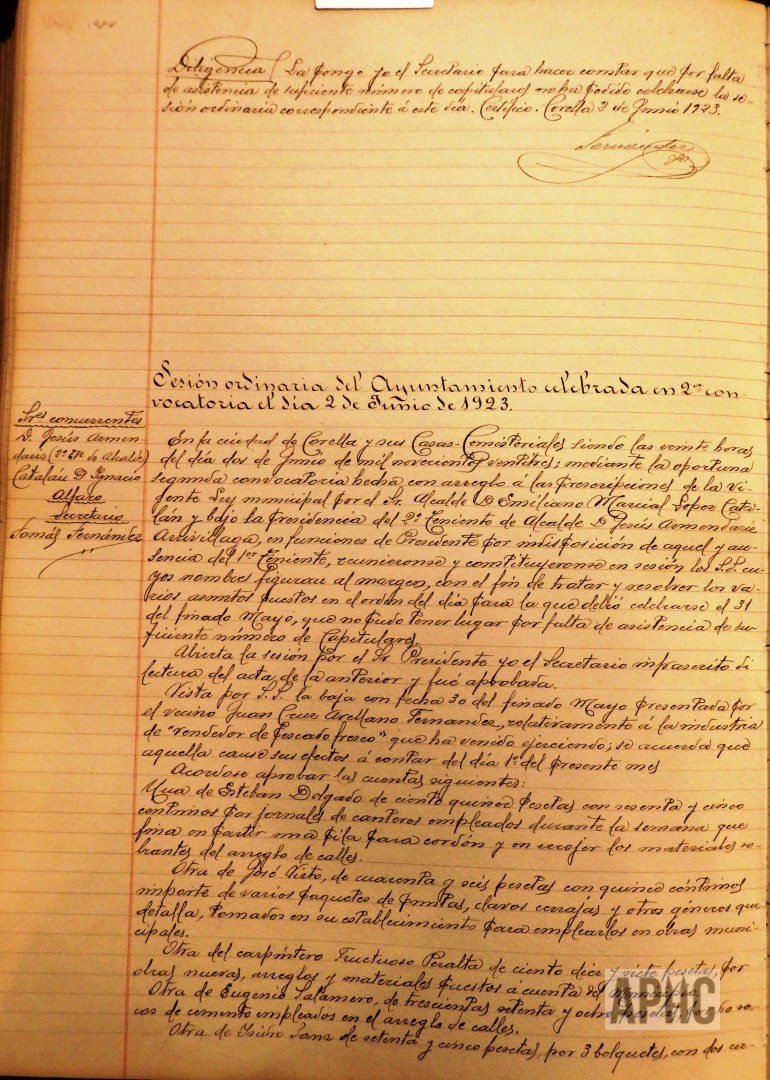 Diligencia / La pongo yo el Secretario para hacer constar que por falta
de asistencia de suficiente número de capitulares no ha podido celebrarse la se-
sión ordinaria correspondiente á este día. Certifico. Corella 2 de Junio 1923.
Fernández
Sesión ordinaria del Ayuntamiento celebrada en 2ª con-
vocatoria el día 2 de Junio de 1923.
Sres concurrentes
D. Jesús Armen-
dariz (2º Tte de Alcalde)
Catalán D Ignacio
Alfaro
Secretario
Tomás Fernández
En la ciudad de Corella y sus Casas-Consistoriales siendo las veinte horas
del día dos de Junio de mil novecientos ventitres; mediante la oportuna
segunda convocatoria hecha, con arreglo á las prescripciones de la vi-
gente Ley municipal por el Sr. Alcalde D Emiliano Marcial Lopez Cata-
lán y bajo la presidencia del 2º Teniente de Alcalde D Jesús Armendariz
Arrivillaga, en funciones de Presidente por indisposición de aquel y au-
sencia del 1er Teniente, reunieronse y constituyeronse en sesión los S.S. cu-
yos nombres figuran al margen, con el fin de tratar y resolver los va-
rios asuntos puestos en el orden del día para la que debió celebrarse el 31
del finado Mayo, que no pudo tener lugar por falta de asistencia de su-
ficiente número de Capitulares.
Abierta la sesión por el Sr. Presidente yo el Secretario infrascrito di
lectura del acta de la anterior y fué aprobada.
Vista por S.S. la baja con fecha 30 del finado Mayo presentada por
el vecino Juan Cruz Arellano Fernandez, relativamente á la industria
de "vendedor de pescado fresco" que ha venido ejerciendo; se acuerda que
aquella cause sus efectos á contar del día 1º del presente mes
Acordose aprobar las cuentas siguientes:
Una de Esteban Delgado de ciento quince pesetas con sesenta y cinco
centimos por jornales de canteros empleados durante la semana que
fina en partir una pila para cordón y en recojer los materiales so-
brantes del arreglo de calles.
Otra de José Virto, de cuarenta y seis pesetas con quince céntimos
importe de varios paquetes de puntas, clavos cerrajas y otros géneros que
detalla, tomados en su establecimiento para emplearlos en obras muni-
cipales.
Otra del carpintero Fructuoso Peralta de ciento diez y siete pesetas, por
obras nuevas, arreglos y materiales puestos á cuenta del Municipio.
Otra de Eugenio Salamero, de trescientas setenta y ocho pesetas, por 60 sa-
cos de cemento empleados en el arreglo de calles.
Otra de Isidro Sanz de setenta y cinco pesetas, por 3 bolquetes, con dos ca-
APHC